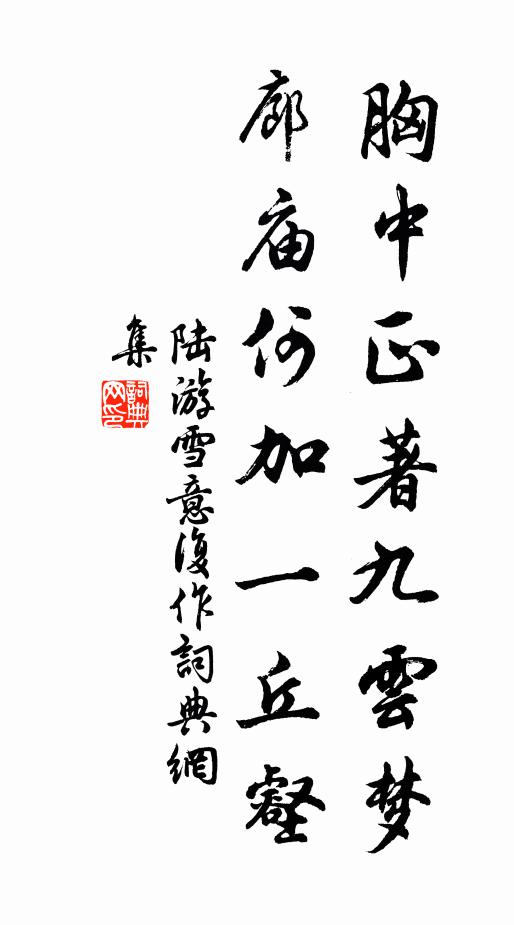 胸中正著九雲梦
廊庙何加一丘壑
陆游雪意復作詞典網
集
詞典
网印